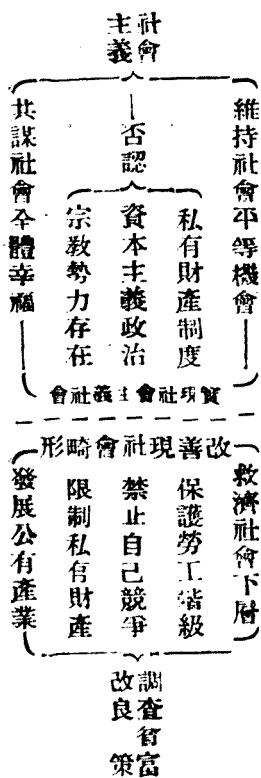 社會
主義
維持社會平等機會
否認
私有財產制度
資本主義政治
宗教勢力存在
共謀社會全體幸福
實現社會主義社會
改善現社會畸形
救濟社會下層
保護勞工階級
禁止自己競爭
限制私有財產
發展公有產業
調查貧富
改良策